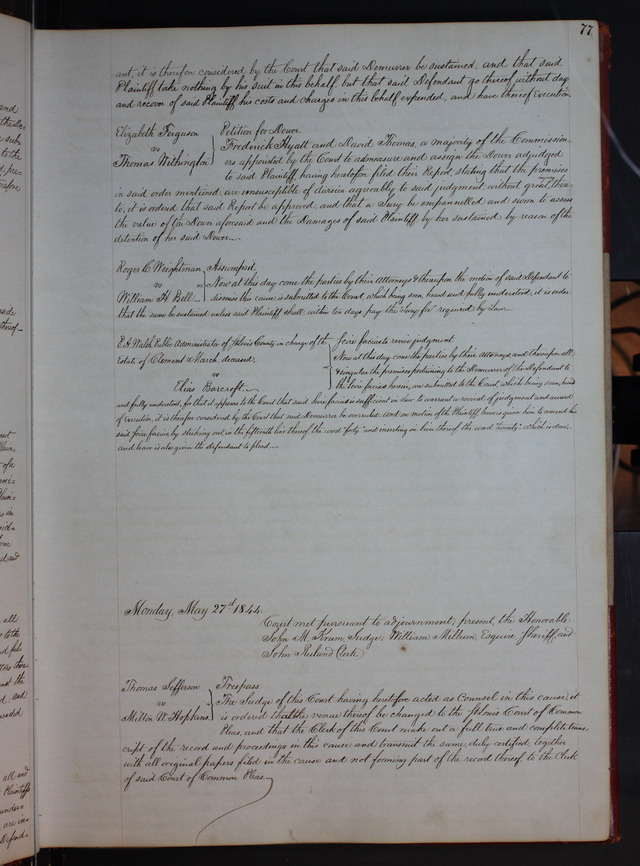 77
ant, it is therefore considered by the Court that said Demurrer be sustained, and that said
Plaintiff take nothing by his suit in this behalf, but that said Defendant go thereof without day
and recover of said Plaintiff his costs and charges in this behalf expended, and have thereof Execution.
Elizabeth Ferguson
vs
Thomas Withington
Petition for Dower.
Frederick Hyatt and David Thomas, a majority of the Commission-
ers appointed by the Court to admeasure and assign the Dower adjudged
to said Plaintiff, having heretofore filed their Report, stating that the premises
in said order mentioned are unsusceptible of division agreeably to said judgment without great
to, it is ordered that said Report be approved, and that a Jury be empannelled and sworn to assess
the value of the Dower aforesaid and the Damages of said Plaintiff by her sustained by reason of the
detention of her said Dower.
Roger C. Weightman
vs
William H. Bell
Assumpsit.
Now at this day come the parties by their Attorneys & thereupon the motion of said Defendant to
dismiss this cause is submitted to the Court, which being seen, heard and fully understood, it is order
that the same be sustained unless said Plaintiff shall, within ten days, pay the Jury fee required by law.
Public Administrator of St. Louis County in charge of the
Estate of Clement March, deceased,
vs
Elias Barcroft
Scire facias to revive judgment.
Now at this day come the parties by their Attorneys, and thereupon all
& singular the premises pertaining to the Demurrer of the Defendant to
the Scire facias herein, are submitted to the Court, which being seen, heard
and fully understood, for that it appears to the Court that said Scire facias is sufficient in Law to warrant a revival of judgment and award
of Execution, it is therefore considered by the Court that said Demurrer be overruled, and on motion of the Plaintiff leave is given him to amend his
said Scire facias by striking out in the fifteenth line thereof the word "forty" and inserting in lieu thereof the word "twenty" which is done,
and leave is also given the Defendant to plead.
Monday, May 27th 1844.
Court met pursuant to adjournment; present, the Honorable
John M. Krum, Judge; William Milburn, Esquire Sheriff, and
John Ruland Clerk
Thomas Jefferson
vs
Milton W. Hopkins
Trespass
The Judge of this Court having heretofore acted as Counsel in this cause, it
is ordered that the venue thereof be changed to the St. Louis Court of Common
Pleas, and that the Clerk of this Court make out a full true and complete trans-
cript of the record and proceedings in this cause and transmit the same, duly certified, together
with all original papers filed in the cause and not forming part of the record thereof to the Clerk
of said Court of Common Pleas.